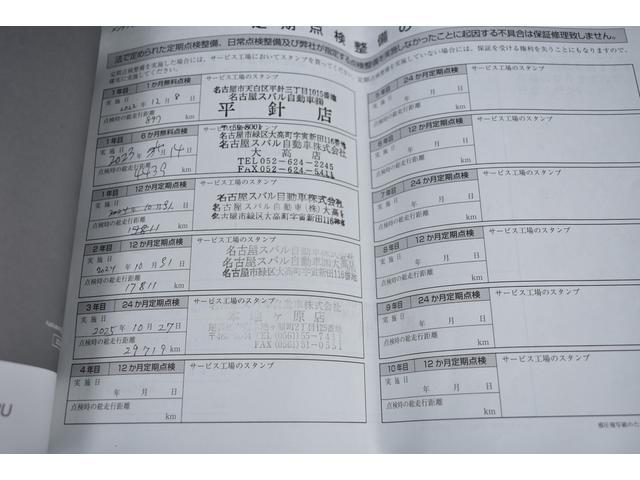 定期点検整備の
法で定められた定期点検整備、日常点検整備及び弊社が指定する点検整備を実施しなかったことに起因する不具合は保証修理致しません。
定期点検整備を実施した場合には、サービス工場においてスタンプを貰ってください。定期点検整備を実施していない場合には、保証を受ける権利を失うことにもなりますので、
確実に実施してください。
1年目 1か月無料点検
サービス工場のスタンプ
実施日
2022年12月8日
点検時の総走行距離
897 km
名古屋市天白区平針三丁目1015番地
名古屋スバル自動車㈱
平針店
1年目 6か月無料点検
サービス工場のスタンプ
実施日
2023年 月14日
点検時の総走行距離
km
名古屋市緑区大高町字寅新田116番地
名古屋スバル自動車株式会社
大高店
TEL 052-624-2245
FAX 052-624-5411
1年目 12か月定期点検
サービス工場のスタンプ
実施日
2024年10月31日
点検時の総走行距離
17811 km
名古屋スバル自動車株式会社
名古屋スバル自動車(株)大高
名古屋市緑区大高町字寅新田116番
2年目 12か月定期点検
サービス工場のスタンプ
実施日
2024年10月31日
点検時の総走行距離
17811 km
名古屋スバル自動車株式会社
名古屋スバル自動車㈱大高店
名古屋市緑区大高町字寅新田116番地
3年目 24か月定期点検
サービス工場のスタンプ
実施日
2025年10月27日
点検時の総走行距離
29719 km
自動車株式会社
本地ヶ原店
4年目 12か月定期点検
サービス工場のスタンプ
実施日
年 月 日
点検時の総走行距離
km
24か月定期点検
サービス工場のスタンプ
実施日
年 月 日
点検時の総走行距離
km
12か月定期点検
サービス工場のスタンプ
実施日
年 月 日
点検時の総走行距離
km
7年目 24か月定期点検
サービス工場のスタンプ
実施日
年 月 日
点検時の総走行距離
km
8年目 12か月定期点検
サービス工場のスタンプ
実施日
年 月 日
点検時の総走行距離
km
9年目 24か月定期点検
サービス工場のスタンプ
実施日
年 月 日
点検時の総走行距離
km
10年目 12か月定期点検
サービス工場のスタンプ
実施日
年 月 日
点検時の総走行距離
km